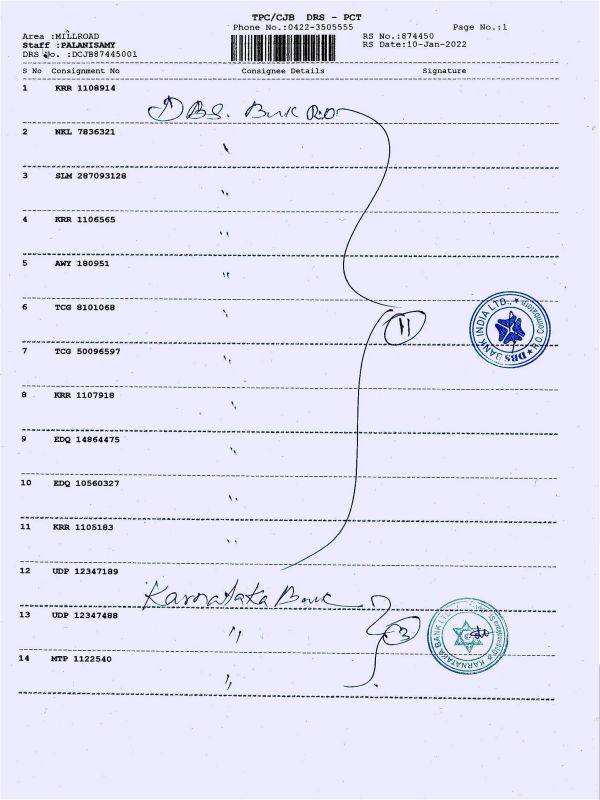 TPC/CJB DRS - PCT
Phone No.:0422-3505555 Page No.:1
Area :MILLROAD RS No.:874450
Staff :PALANISAMY RS Date:10-Jan-2022
DRS No. :DCJB87445001
S No Consignment No Consignee Details Signature
1 KRR 1108914
DBS. Bank R.O
2 NKL 7836321
"
3 SLM 287093128
"
4 KRR 1106565
"
5 AWY 180951
"
6 TCG 8101068
"
11
DBS BANK INDIA LTD., * R.O. Coimbatore *
7 TCG 50096597
"
8 KRR 1107918
"
9 EDQ 14864475
"
10 EDQ 10560327
"
11 KRR 1105183
"
12 UDP 12347189
Karnataka Bank
13 UDP 12347488
"
3
KARNATAKA BANK LTD
14 MTP 1122540
"